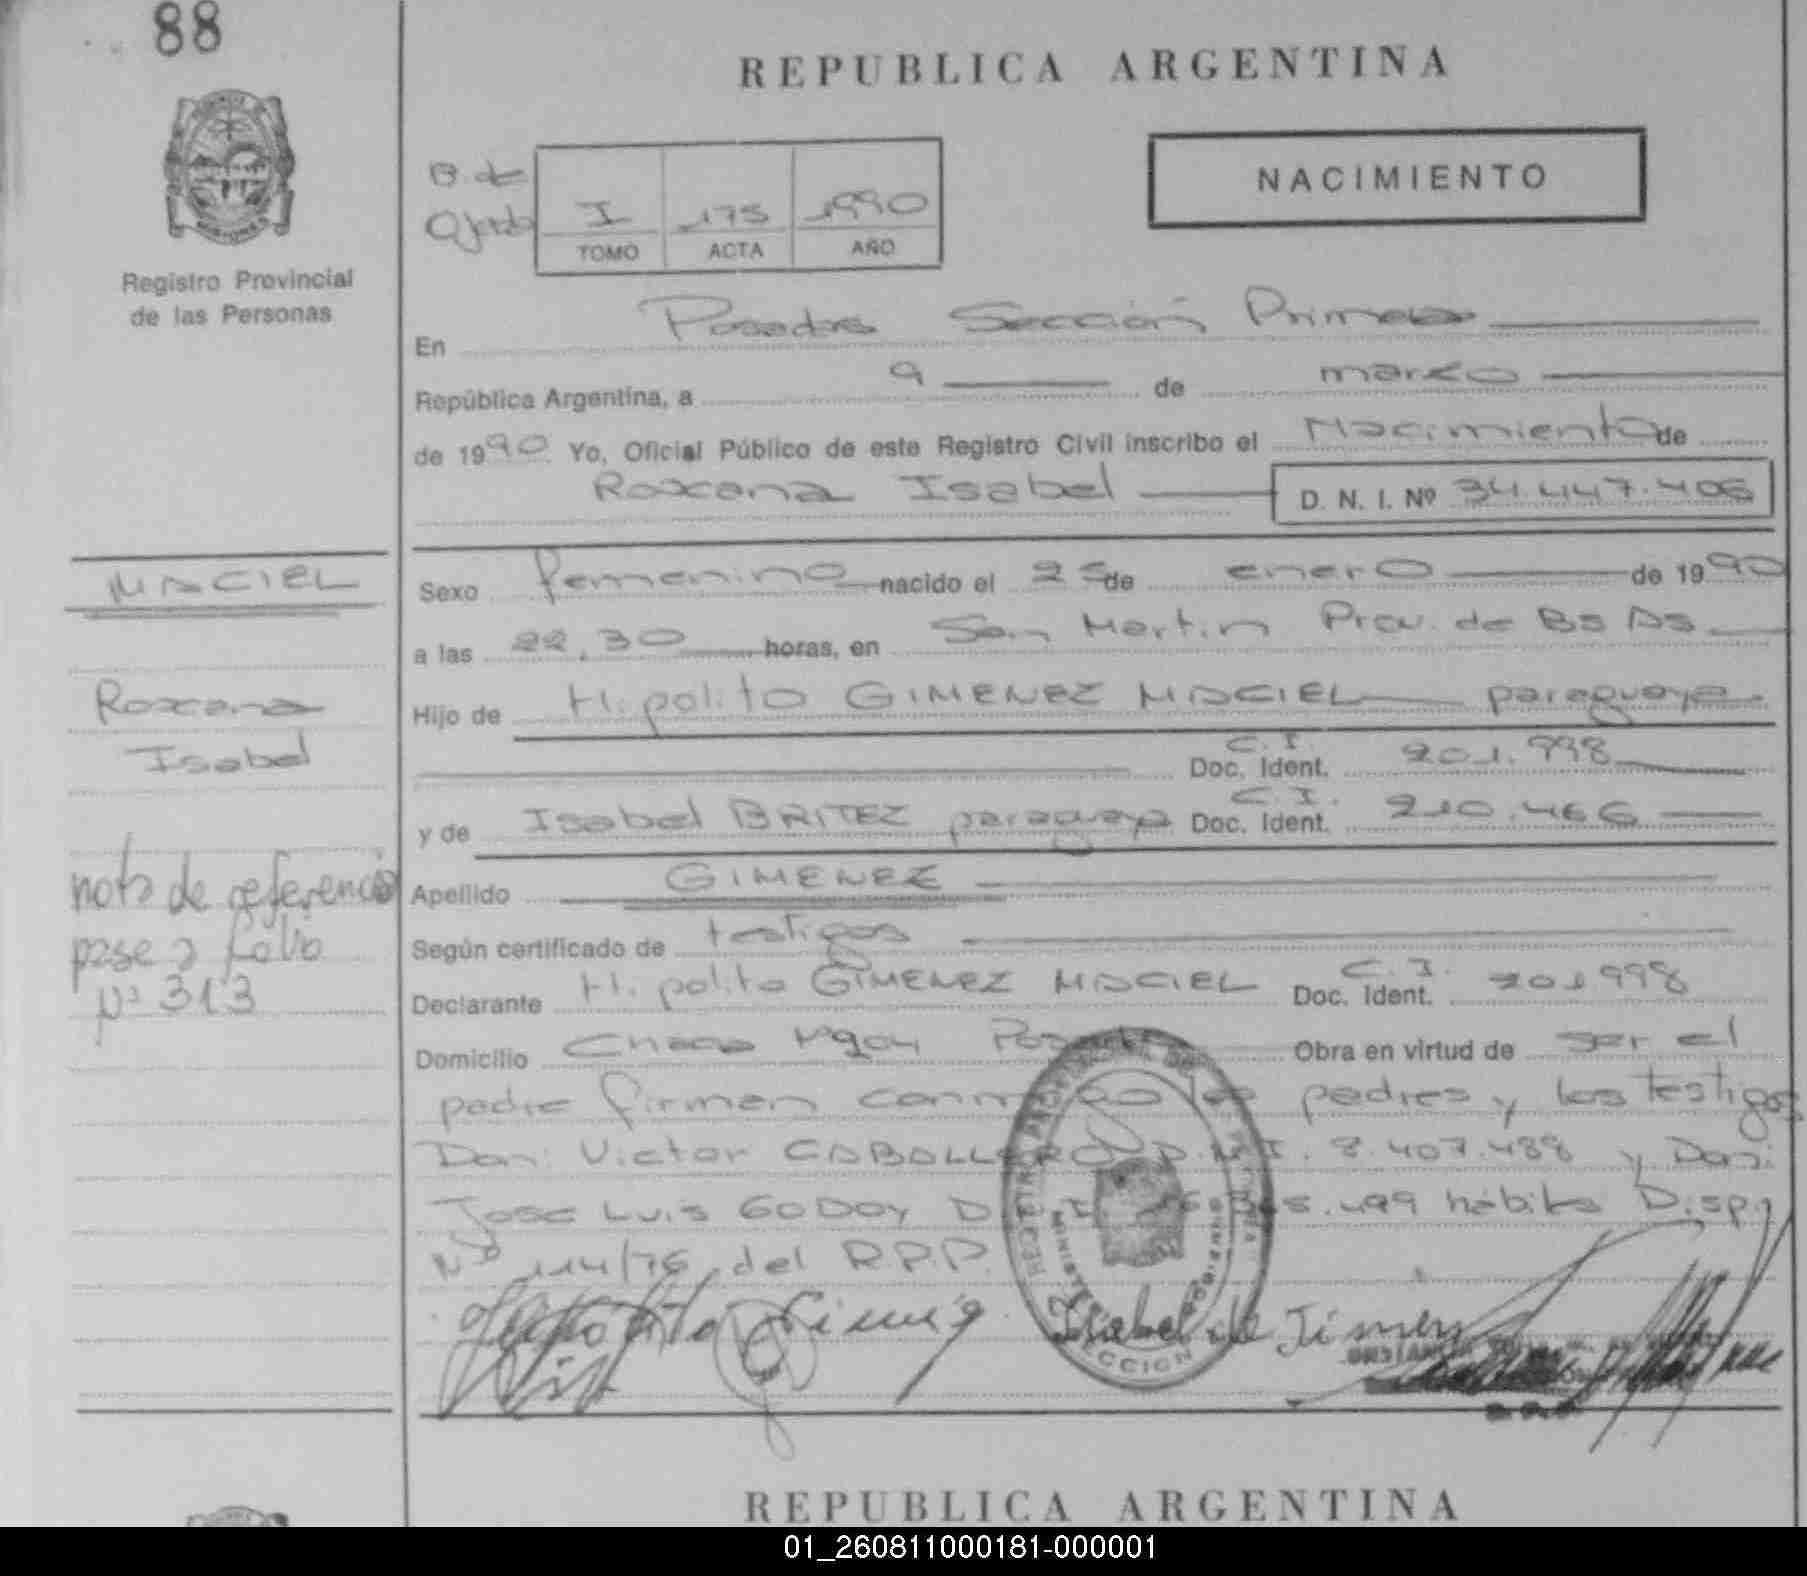 88
REPUBLICA ARGENTINA
NACIMIENTO
B. de
I 175 1990
TOMO ACTA AÑO
Registro Provincial
de las Personas
En Posadas Sección Primera
República Argentina, a 9 de marzo
de 1990 Yo, Oficial Público de este Registro Civil inscribo el Nacimiento de
Roxana Isabel D. N. I. Nº 34.447.406
MACIEL
Roxana
Isabel
nota de referencia
pase a folio
Nº 313
Sexo femenino nacido el 25 de enero de 1990
a las 22.30 horas, en San Martin Prov. de Bs As
Hijo de Hipolito GIMENEZ MACIEL paraguayo
C.I.
Doc. Ident. 201.998
y de Isabel BRITEZ paraguaya C.I. Doc. Ident. 210.466
Apellido GIMENEZ
Según certificado de testigos
Declarante Hipolito GIMENEZ MACIEL C.I. Doc. Ident. 201998
Domicilio Obra en virtud de ser el
padre firman conmigo los padres y los testigos
Don: Victor CABALLERO D.N.I. 8.407.488 y Don:
Jose Luis GODOY hábiles Disp.
Nº 114/76 del R.P.P.
Isabel de Jimenez
REPUBLICA ARGENTINA
01_260811000181-000001